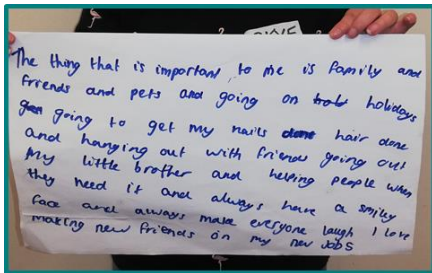 The thing that is important to me is family and
friends and pets and going on holidays
going to get my nails hair done
and hanging out with friends going out
My little brother and helping people when
they need it and always have a smiley
face and always make everyone laugh I love
making new friends in my new jobs